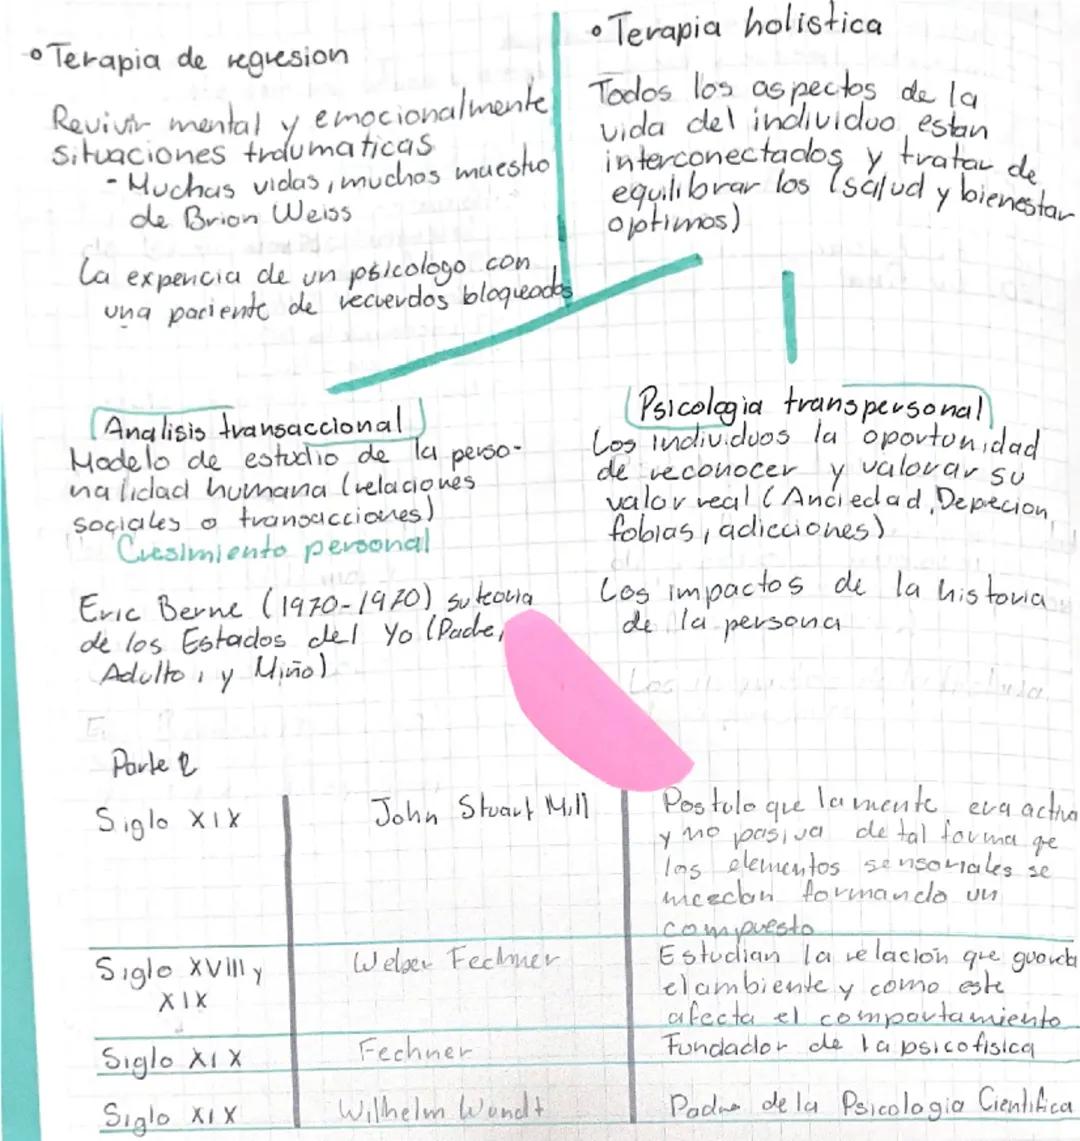 • Terapia de regresion
Revivir mental y emocionalmente
situaciones traumaticas
- Muchas vidas, muchos maestro
de Brian Weiss
La expencia de un psicologo con
una paciente de recuerdos bloqueados
• Terapia holistica
Todos los aspectos de la
vida del individuo estan
interconectados y tratar de
equilibrar los (salud y bienestar
optimos)
Analisis transaccional
Modelo de estudio de la perso-
nalidad humana (relaciones
sociales o transacciones)
Cresimiento personal
Eric Berne (1970-1970) su teoria
de los Estados del Yo (Padre,
Adulto, y Niño)
Psicologia transpersonal
Los individuos la oportunidad
de reconocer y valorar su
valor real (Anciedad, Depecion,
fobias, adicciones)
Los impactos de la historia
de la persona
Parte 2
Siglo XIX
John Stuart Mill
Postulo que la mente era activa
y no pasiva de tal forma qe
los elementos sensoriales se
mezclan formando un
compuesto
Siglo XVIII y
XIX
Weber Fechner
Estudian la relación que guarda
el ambiente y como este
afecta el compartamiento
Siglo XIX
Fechner
Fundador de la psicofisica
Siglo XIX
Wilhelm Wundt
Padre de la Psicologia Cientifica